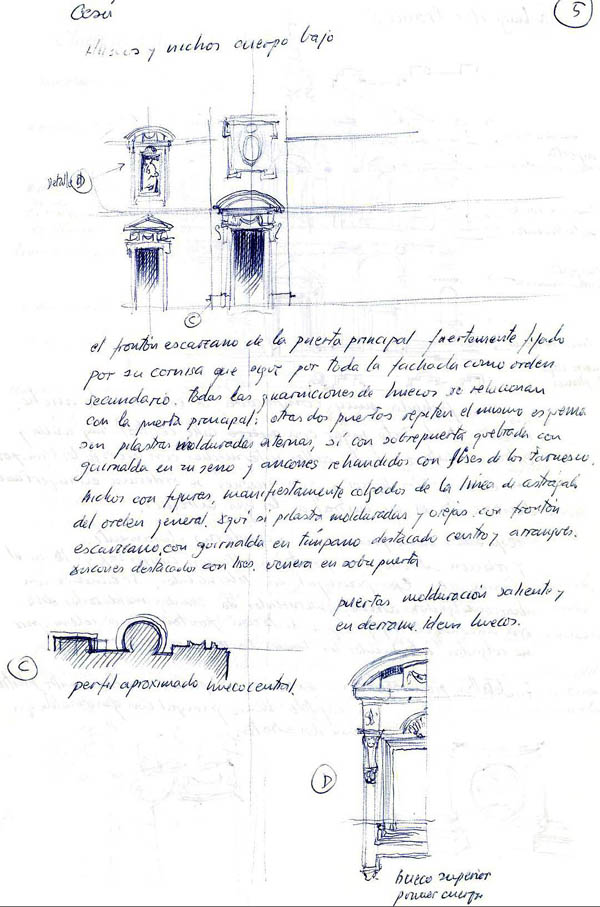 Gesú
5
Huecos y nichos cuerpo bajo
detalle D
C
el frontón escarzano de la puerta principal fuertemente fijado
por su cornisa que sigue por toda la fachada como orden
secundario. Todas las guarniciones de huecos se relacionan
con la puerta principal; otras dos puertas repiten el mismo esquema
sin pilastras molduradas externas, sí con sobrepuerta quebrada con
guirnalda en su seno y ancones rehundidos con flises de los farnesio.
Nichos con figuras, manifiestamente colgados de la línea de astrágalo
del orden general. Aquí sí pilastra molduradas y orejas. con frontón
escarzano, con guirnalda en tímpano destacado centro y arranques.
ancones destacado con lises. venera en sobrepuerta
puertas molduración saliente y
en derrame. Idem huecos.
C
perfil aproximado hueco central.
D
hueco superior
primer cuerpo